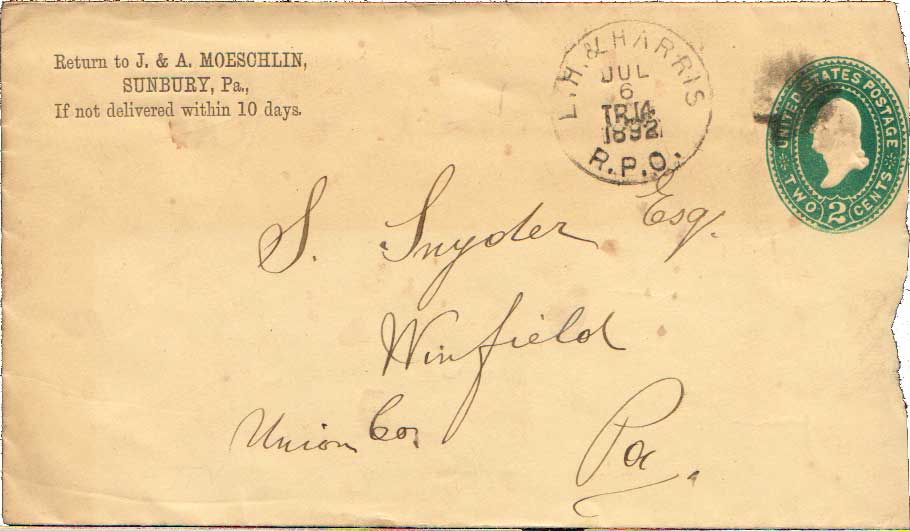 Return to J. & A. MOESCHLIN,
SUNBURY, Pa.,
If not delivered within 10 days.
L. H. & HARRIS
JUL
6
TR.14
1892
R.P.O.
UNITED STATES POSTAGE
TWO 2 CENTS
S. Snyder Esq.
Winfield
Union Co.
Pa.